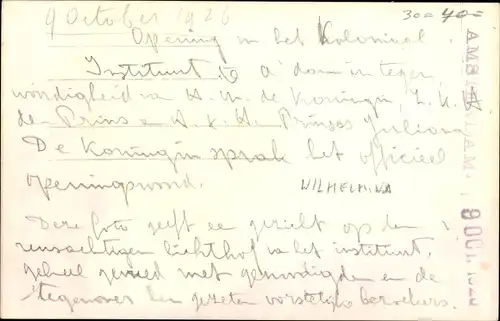 9 October 1926
30= 40=
Opening in het Koloniaal
Instituut te A'dam in tegen
woordigheid van H.M. de Koningin, Z.K.H.
den Prins en H.K.H. Prinses Juliana
De Koningin sprak het officieel
openingswoord.
WILHELMINA
Deze foto geeft een gezicht op den
lichthof van het instituut,
geheel gevuld met genoodigden en de
tegenover hen gezeten vorstelijke bezoekers.
AMSTERDAM.
9 OCT. 1926